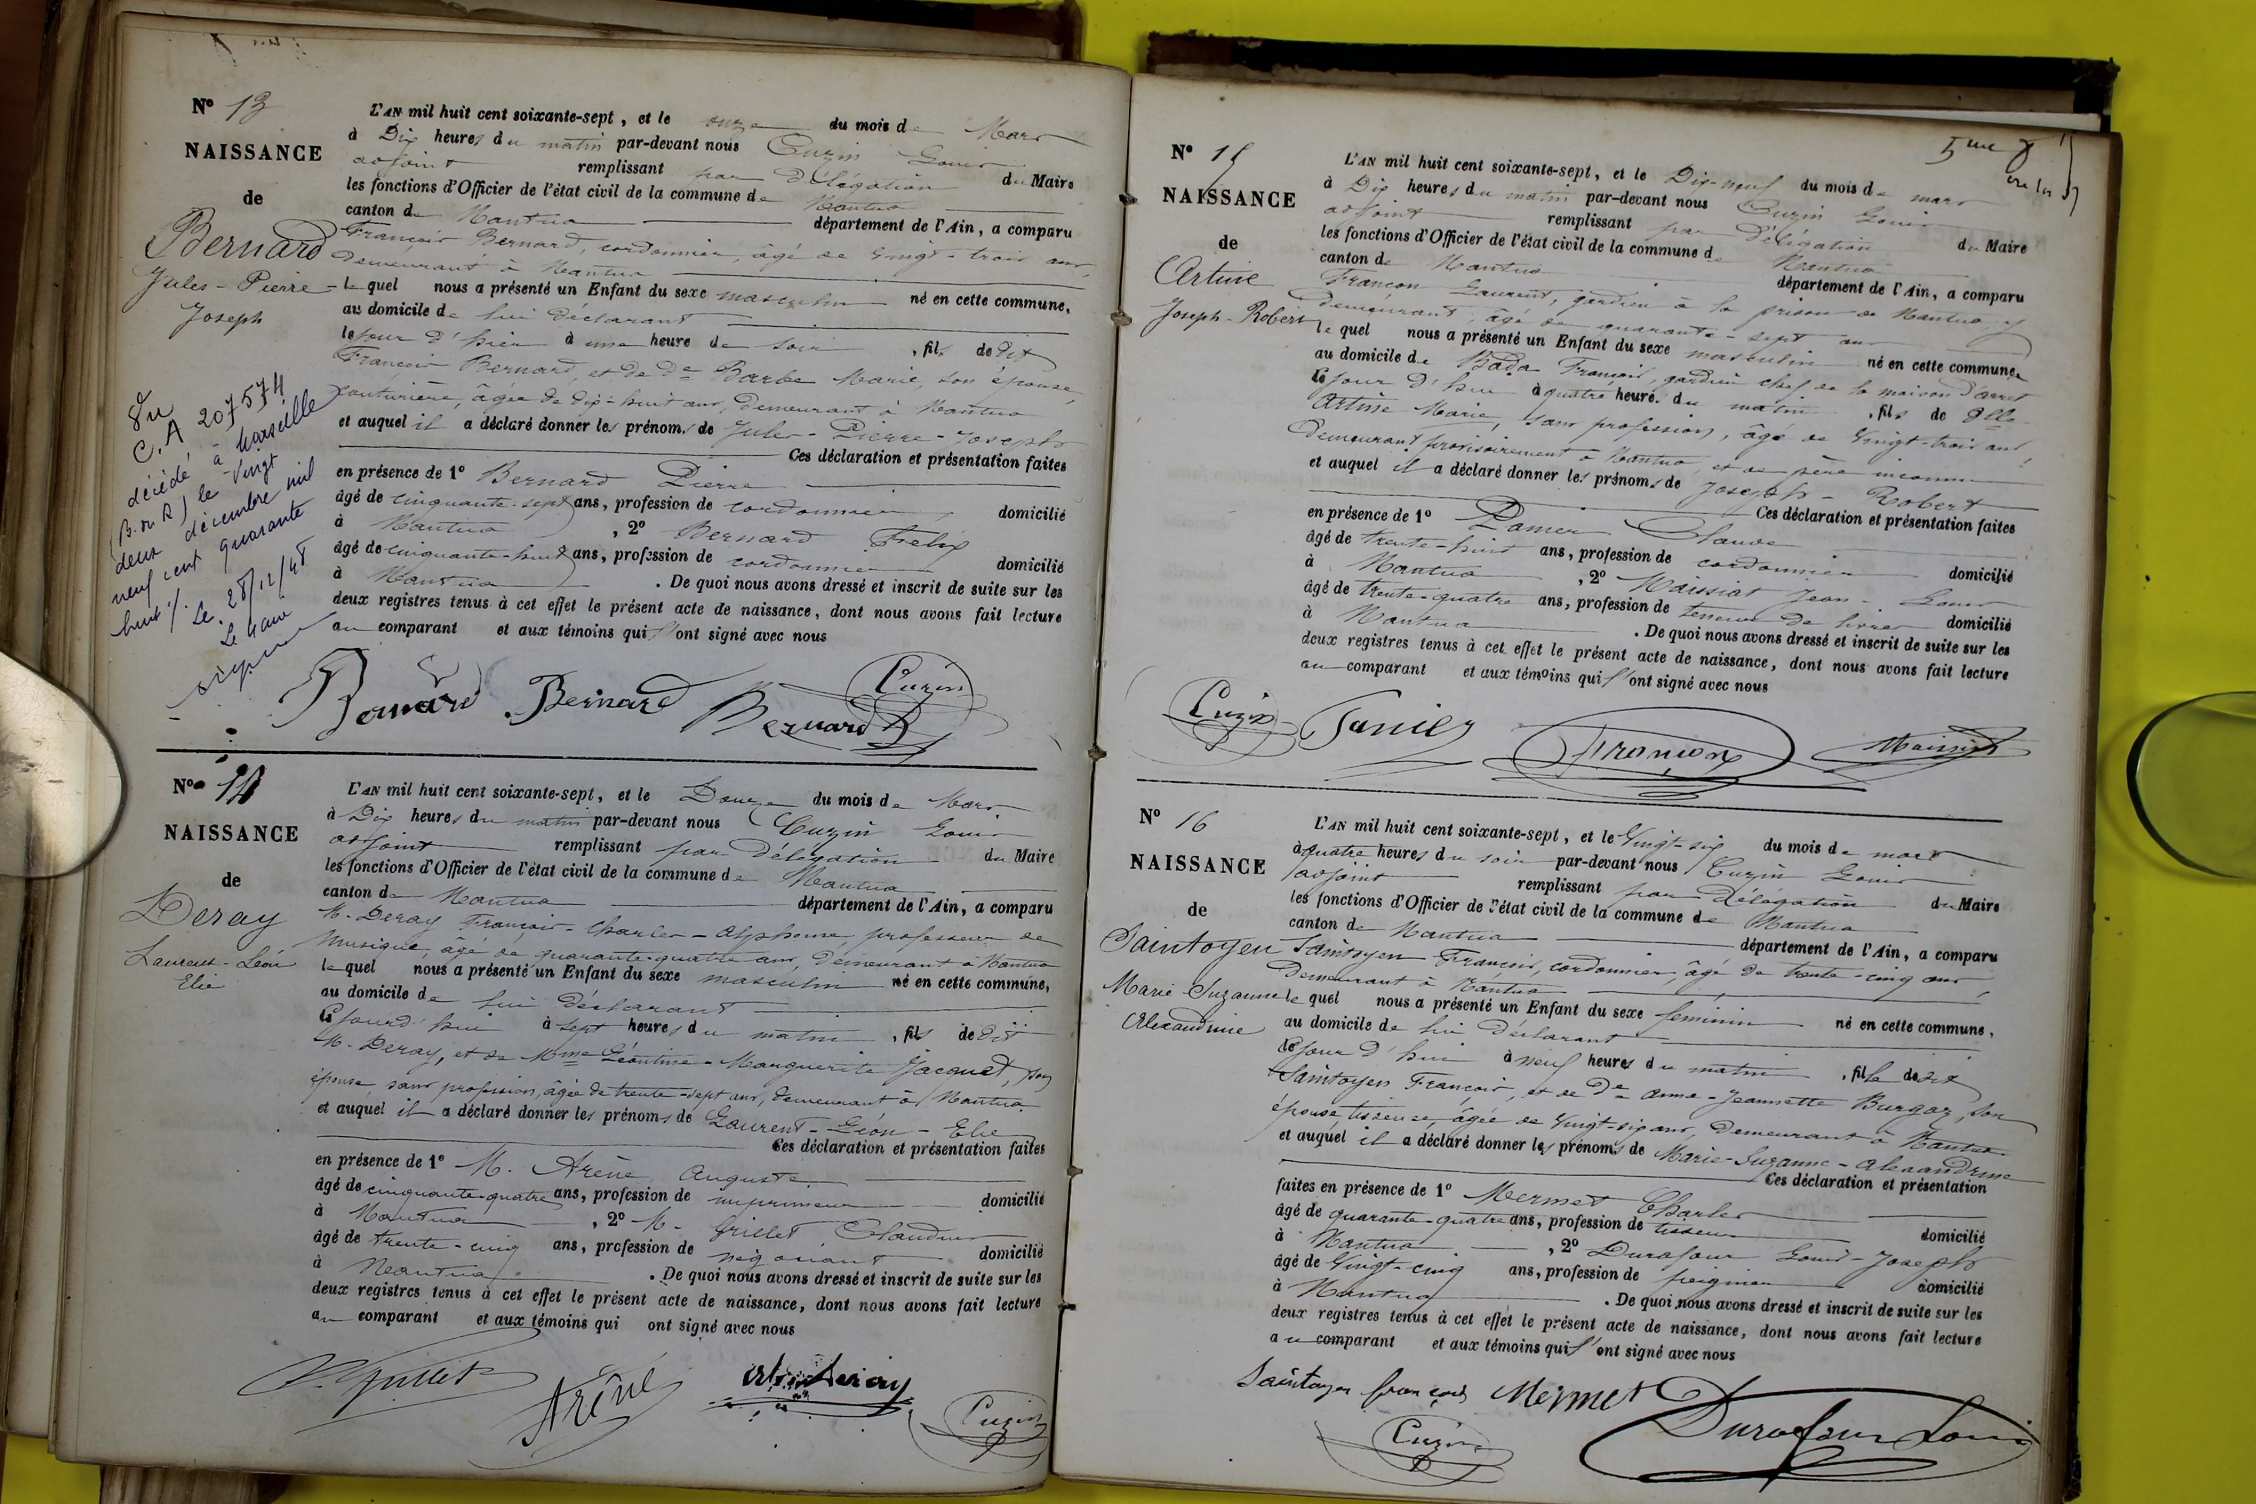 N° 13
NAISSANCE
de
Bernard
Jules - Pierre -
Joseph
L'AN mil huit cent soixante-sept, et le onze du mois de Mars
à Dix heures du matin par-devant nous Cuzin Louis
adjoint remplissant par Délégation du Maire
les fonctions d'Officier de l'état civil de la commune de Nantua
canton de Nantua département de l'Ain, a comparu
François Bernard, cordonnier, âgé de vingt-trois ans,
demeurant à Nantua
le quel nous a présenté un Enfant du sexe masculin né en cette commune,
au domicile de lui déclarant
le jour d'hier à une heure de soir, fils de dit
François Bernard, et de De Barbe Marie, son épouse,
couturière, âgée de dix-huit ans, demeurant à Nantua
et auquel il a déclaré donner les prénoms de Jules - Pierre - Joseph
Ces déclaration et présentation faites
en présence de 1° Bernard Pierre
âgé de cinquante-sept ans, profession de cordonnier, domicilié
à Nantua, 2° Bernard Felix
âgé de cinquante-huit ans, profession de cordonnier domicilié
à Nantua. De quoi nous avons dressé et inscrit de suite sur les
deux registres tenus à cet effet le présent acte de naissance, dont nous avons fait lecture
au comparant et aux témoins qui l'ont signé avec nous
C.A 207574
décédé à Marseille
(B. du R) le vingt
deux décembre mil
neuf cent quarante
huit /. Le 28/12/48
Bernard Bernard Bernard Cuzin
N° 14
NAISSANCE
de
Deray
Laurent - Léon
Elie
L'AN mil huit cent soixante-sept, et le Douze du mois de Mars
à Dix heures du matin par-devant nous Cuzin Louis
adjoint remplissant par Délégation du Maire
les fonctions d'Officier de l'état civil de la commune de Nantua
canton de Nantua département de l'Ain, a comparu
M. Deray François - Charles - Alphonse, professeur de
musique, âgé de quarante-quatre ans, demeurant à Nantua
le quel nous a présenté un Enfant du sexe masculin né en cette commune,
au domicile de lui déclarant
le jourd'hui à sept heures du matin, fils de dit
M. Deray, et de Mme Léontine - Marguerite Jacquet, son
épouse, sans profession, âgée de trente-sept ans, demeurant à Nantua
et auquel il a déclaré donner les prénoms de Laurent - Léon - Elie
Ces déclaration et présentation faites
en présence de 1° M. Arène Auguste
âgé de cinquante-quatre ans, profession de imprimeur domicilié
à Nantua, 2° M. Grillet Claudius
âgé de trente-cinq ans, profession de négociant domicilié
à Nantua. De quoi nous avons dressé et inscrit de suite sur les
deux registres tenus à cet effet le présent acte de naissance, dont nous avons fait lecture
au comparant et aux témoins qui ont signé avec nous
Grillet Arène Deray Cuzin
5me
N° 15
NAISSANCE
de
Artine
Joseph - Robert
L'AN mil huit cent soixante-sept, et le Dix-neuf du mois de mars
à Dix heures du matin par-devant nous Cuzin Louis
adjoint remplissant par Délégation du Maire
les fonctions d'Officier de l'état civil de la commune de Nantua
canton de Nantua département de l'Ain, a comparu
Françon Laurent, gardien à la prison de Nantua, y
demeurant, âgé de quarante-sept ans
le quel nous a présenté un Enfant du sexe masculin né en cette commune,
au domicile de Bada François, gardien chef de la maison d'arret
le jour d'hui à quatre heures du matin, fils de Dlle
Artine Marie, sans profession, âgée de vingt-trois ans,
demeurant provisoirement à Nantua, et de père inconnu
et auquel il a déclaré donner les prénoms de Joseph - Robert
Ces déclaration et présentation faites
en présence de 1° Claude
âgé de trente-huit ans, profession de cordonnier domicilié
à Nantua, 2° Maissiat Jean - Louis
âgé de trente-quatre ans, profession de teneur de livres domicilié
à Nantua. De quoi nous avons dressé et inscrit de suite sur les
deux registres tenus à cet effet le présent acte de naissance, dont nous avons fait lecture
au comparant et aux témoins qui l'ont signé avec nous
Cuzin Françon Maissiat
N° 16
NAISSANCE
de
Saintoyen
Marie Suzanne
Alexandrine
L'AN mil huit cent soixante-sept, et le Vingt-six du mois de mars
à quatre heures du soir par-devant nous Cuzin Louis
adjoint remplissant par Délégation du Maire
les fonctions d'Officier de l'état civil de la commune de Nantua
canton de Nantua département de l'Ain, a comparu
Saintoyen François, cordonnier, âgé de trente-cinq ans,
demeurant à Nantua
le quel nous a présenté un Enfant du sexe féminin né en cette commune,
au domicile de lui déclarant
le jour d'hui à neuf heures du matin, fille de dit
Saintoyen François, et de De Anne - Jeannette Burgoz, son
épouse tisseuse, âgée de vingt-six ans, demeurant à Nantua
et auquel il a déclaré donner les prénoms de Marie - Suzanne - Alexandrine
Ces déclaration et présentation
faites en présence de 1° Mermet Charles
âgé de quarante-quatre ans, profession de tisseur domicilié
à Nantua, 2° Durafour Louis - Joseph
âgé de Vingt-cinq ans, profession de peignier domicilié
à Nantua. De quoi nous avons dressé et inscrit de suite sur les
deux registres tenus à cet effet le présent acte de naissance, dont nous avons fait lecture
au comparant et aux témoins qui l'ont signé avec nous
Saintoyen françois Mermet
Cuzin Durafour Louis